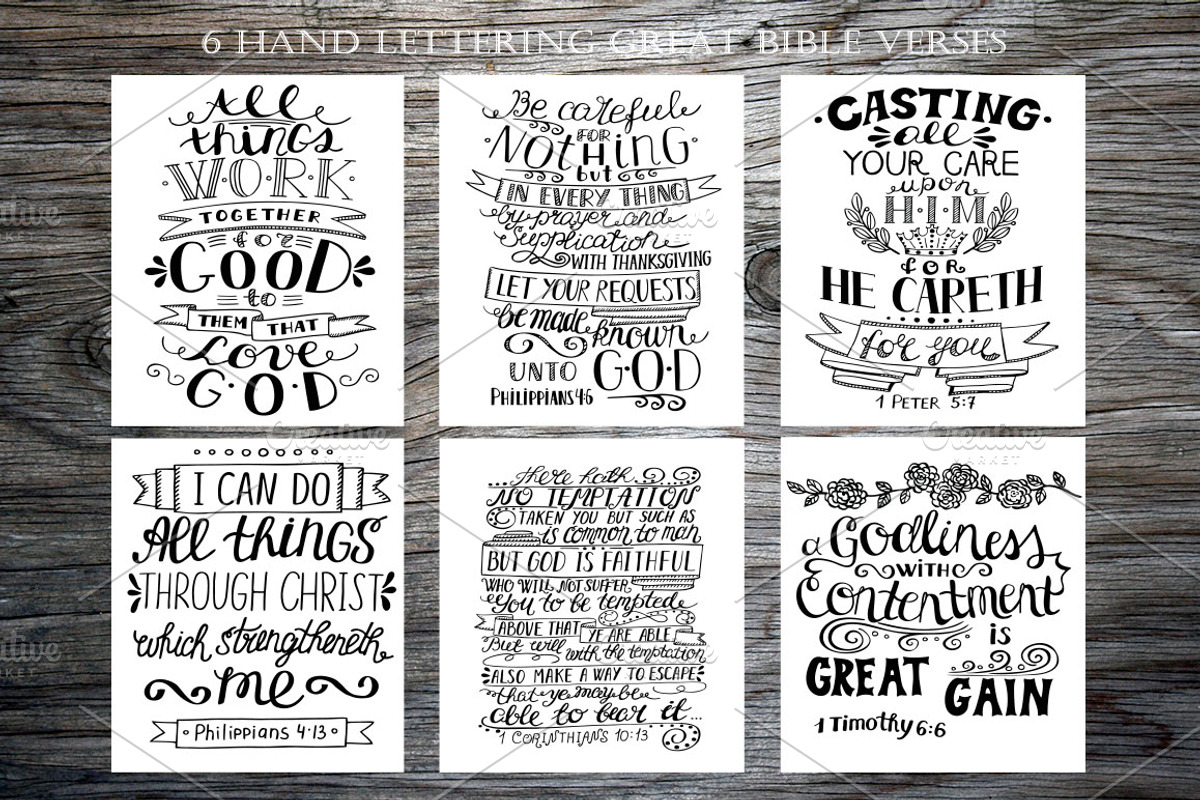 6 HAND LETTERING GREAT BIBLE VERSES
All
things
WORK
TOGETHER
for
GOOD
to
THEM THAT
Love
G·O·D
Be careful
FOR
NOtHiNG
but
IN EVERY THING
by prayer and
Supplication
WITH THANKSGIVING
LET YOUR REQUESTS
be made known
UNTO G·O·D
Philippians 4:6
·CASTING·
all
YOUR CARE
upon
H·I·M
for
HE CARETH
for you
1 PETER 5:7
I CAN DO
All thiNGS
THROUGH CHRIST
which strengtheneth
me
·Philippians 4·13·
there hath
NO TEMPTATION
TAKEN YOU BUT SUCH AS
is common to man
BUT GOD IS FAITHFUL
WHO WILL NOT SUFFER
You to be tempted
ABOVE THAT YE ARE ABLE
But will with the temptation
ALSO MAKE A WAY TO ESCAPE
that ye may be
able to bear it...
1 CORINTHIANS 10:13
a Godliness
WITH
Contentment
is
GREAT
GAIN
1 Timothy 6:6
Creative
MARKET
Creative
MARKET